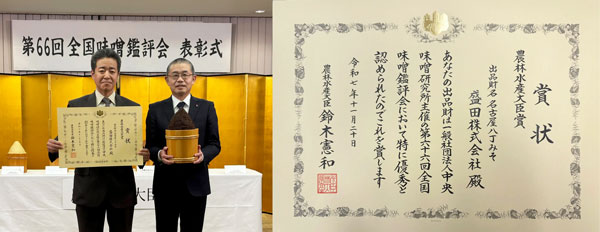 第66回 全国味噌鑑評会 表彰式
大臣
賞状
農林水産大臣賞
出品財名 名古屋八丁みそ
盛田株式会社 殿
あなたの出品財は一般社団法人中央
味噌研究所主催の第六十六回全国
味噌鑑評会において特に優秀と
認められたのでこれを賞します
令和七年十一月二十日
農林水産大臣 鈴木憲和